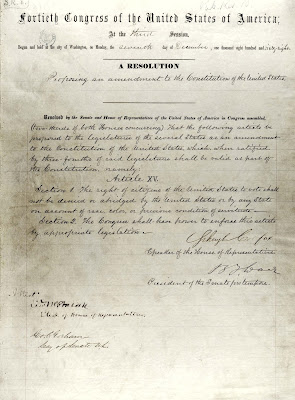 Fortieth Congress of the United States of America;
At the third Session,
Begun and held at the city of Washington, on Monday, the seventh day of December, one thousand eight hundred and sixty-eight.
A RESOLUTION
Proposing an amendment to the Constitution of the United States.
Resolved by the Senate and House of Representatives of the United States of America in Congress assembled,
(two-thirds of both Houses concurring) That the following article be
proposed to the legislatures of the several States as an amendment
to the Constitution of the United States, which, when ratified
by three-fourths of said legislatures shall be valid as part of
the Constitution, namely:
Article XV.
Section 1. The right of citizens of the United States to vote shall
not be denied or abridged by the United States or by any State
on account of race, color, or previous condition of servitude.
Section 2. The Congress shall have power to enforce this article
by appropriate legislation.
Speaker of the House of Representatives
President of the Senate pro tempore.
Attest:
Clerk of House of Representatives.